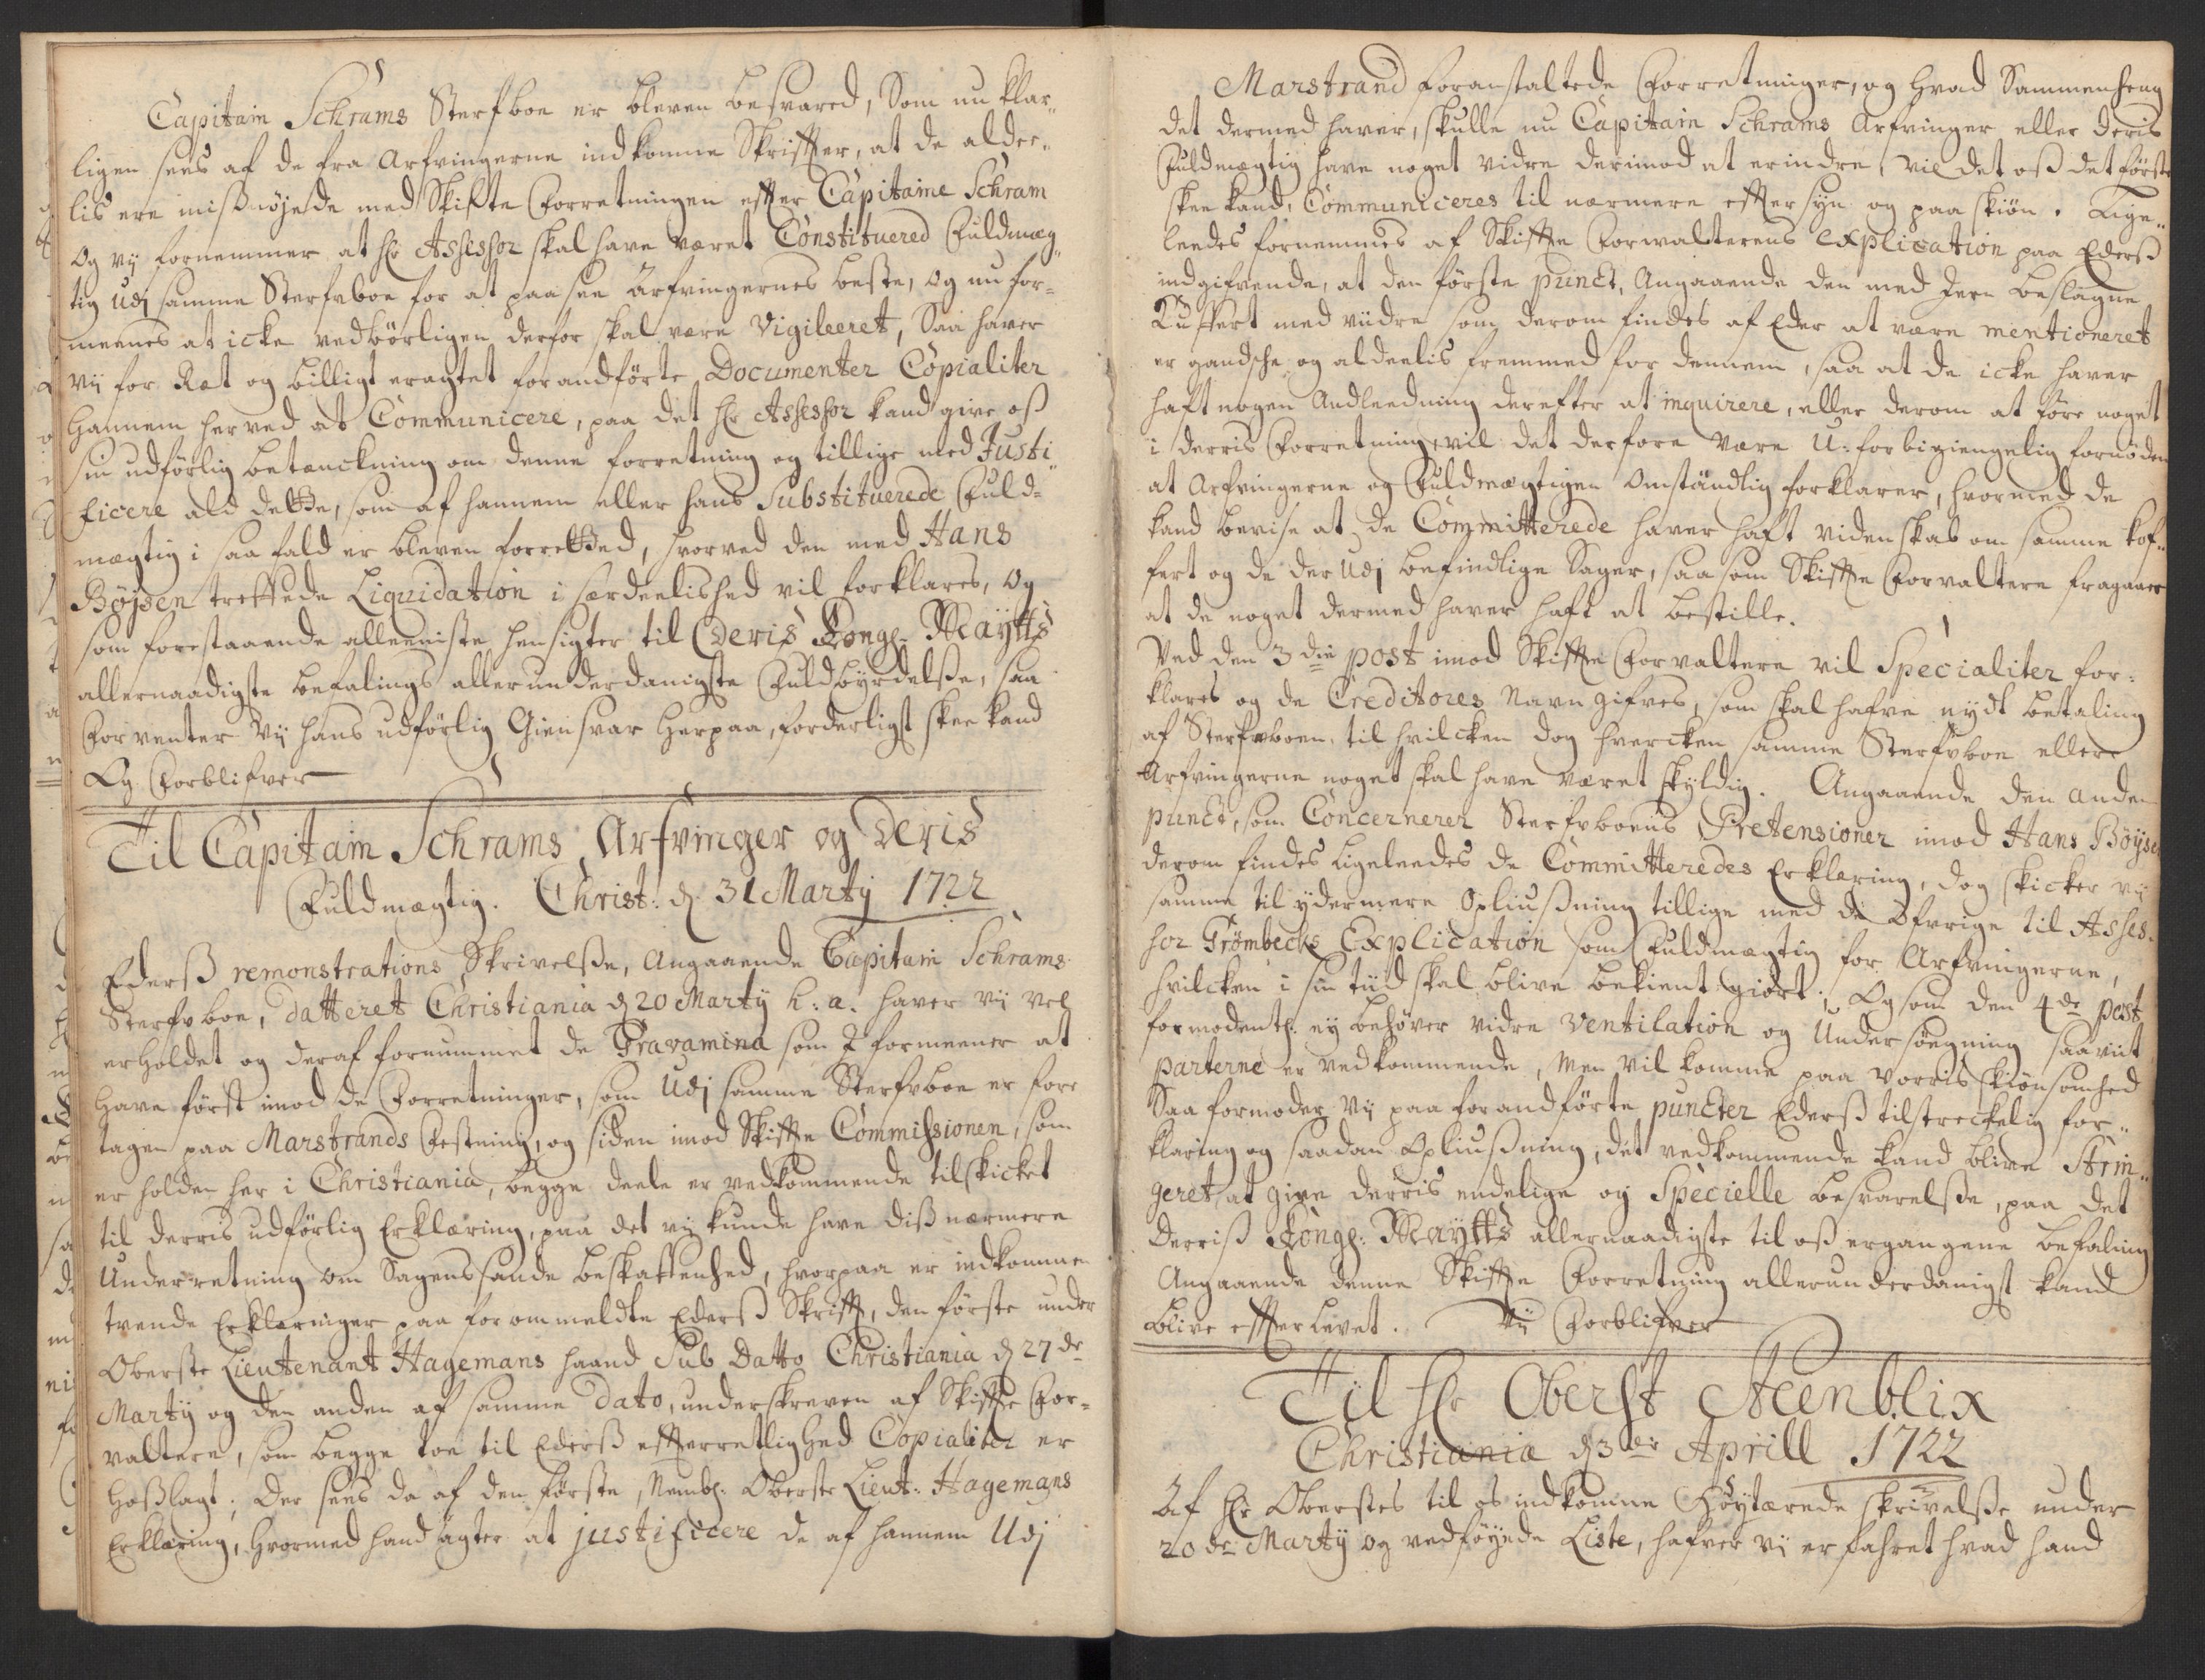 Capitain Schrams Sterfboe er bleven besvared, Som nu klar-
ligen sees af de fra Arfvingerne indkomne Skriffter, at de aldee-
lis ere misnøjede med Skifte Forretningen efter Capitaine Schram
Og vij fornemmer at Hr Assessor skal have været Constituered Fuldmæg-
tig Udj samme Sterfvboe for at paasee Arfvingernes beste, og nu for-
meenes at icke vedbørligen derfor skal være Vigileeret, Saa haver
vij for Ræt og billigt eragtet forandførte Documenter Copialiter
Hannem herved at Communicere, paa det Hr Assessor kand give oss
sin udførlig betænckning om denne forretning og tillige med Justi-
ficere ald dette, som af hannem eller hans Substituerede Fuld-
mægtig i saa fald er bleven forretted, hvorved den med Hans
Bøjsen treffede Liquidation i særdeelished vil forklares, Og
som forestaaende alleeniste hensigter til Deris Kongl. Maytts
allernaadigste befalings allerunderdanigste Fuldbyrdelse, saa
Forventer Vij hans udførlig Giensvar herpaa, forderligst skee kand
Og Forblifver
Til Capitain Schrams Arfvinger og Deris
Fuldmægtig. Christ: d. 31 Martij 1722
Eders remonstrations Skrivelsse, Angaaende Capitain Schrams
Sterfvboe, Datteret Christiania d. 20 Martij h: a. haver vij vel
erholdet og deraf fornummet de Gravamina som I formeener at
have først imod de Forretninger, som Udj samme Sterfvboe er fore
tagen paa Marstrands Festning, og siden imod Skiffte Commissionen, som
er holden her i Christiania, begge deele er vedkommende tilskicket
til derris udførlig Erklæring, paa det vij kunde have diss nærmere
Underretning om Sagens sande beskaffenhed, hvorpaa er indkommen
tvende Erklæringer paa forommeldte Eders Skrifft, den første under
Oberste Lieutenant Hagemans haand Sub Datto Christiania d. 27de
Martij og den anden af samme Dato, underskreven af Skiffte For-
valtere, som begge toe til Eders effterretlighed Copialiter er
hosslagt. Der sees da af den første, Nembl: Oberste Lieut: Hagemans
Erklæring, hvormed hand agter at justificere de af hannem Udj
Marstrand foranstaltede Forretninger, og hvad Sammenheng
det dermed haver, skulle nu Capitain Schrams Arfvinger eller deris
Fuldmægtig have noget vidre derimod at erindre, vil det oss det første
skee kand, Communiceres til nærmere effter syn og paa skiøn. Lige-
leedes fornemmes af Skiffte Forwalterens explication paa Eders
indgifvende, at den første punct, Angaaende den med Jern beslagne
Kuffert med viidre som derom findes af Eder at være mentioneret
er gandsche og aldeelis fremmed for dennem, saa at de icke haver
haft nogen Andleedning derefter at inquirere, eller derom at føre noget
i derris Forretning, vil det derfore være U-forbigiengelig fornøden
at Arfvingerne og Fuldmægtigen omständlig forklarer, hvormed de
kand bevise at de Committerede haver haft videnskab om samme kof-
fert og de der Udj befindlige Sager, saa som Skiffte Forvaltere fragaaer
at de noget dermed haver haft at bestille.
Ved den 3die post imod Skiffte Forvaltere vil Specialiter for-
klares og de Creditores Navn gifves, som skal hafve nydt betaling
af Sterfvboen, til hvilcken dog hvercken samme Sterfvboe eller
Arfvingerne noget skal have været skyldig. Angaaende den anden
punct, som Concernerer Sterfvboens Prætensioner imod Hans Bøyse
derom findes ligeleedes de Committeredes Erklæring, dog skicker vij
samme til ydermere Opliussning tillige med de Øfvrige til Asses-
sor Grømbecks Explication som Fuldmægtig for Arfvingerne,
hvilcken i sin tiid skal blive bekient giort; Og som den 4de post
formodentl: ey behøver vidre Ventilation og Undersøegning saaviit
parterne er vedkommende, men vil komme paa vorris skiønsomhed
Saa formoder Vij paa forandførte puncter Eders tilstreckelig for-
klaring og saadan Opliussning, det vedkommende kand blive Strin-
geret, at give derris endelige og Specielle besvarelsse, paa det
Deris Kongl: Maytts allernaadigste til oss ergangene befaling
Angaaende denne Skiffte Forretning allerunderdanigst kand
blive effterlevet. Vij Forblifver
Til Hr Oberst Steenblix
Christiania d. 3de Aprill 1722
Af Hr Oberstes til os indkomne Høytærede skrivelsse under
20de Martij og vedføyede Liste, hafver vij erfahret hvad hand